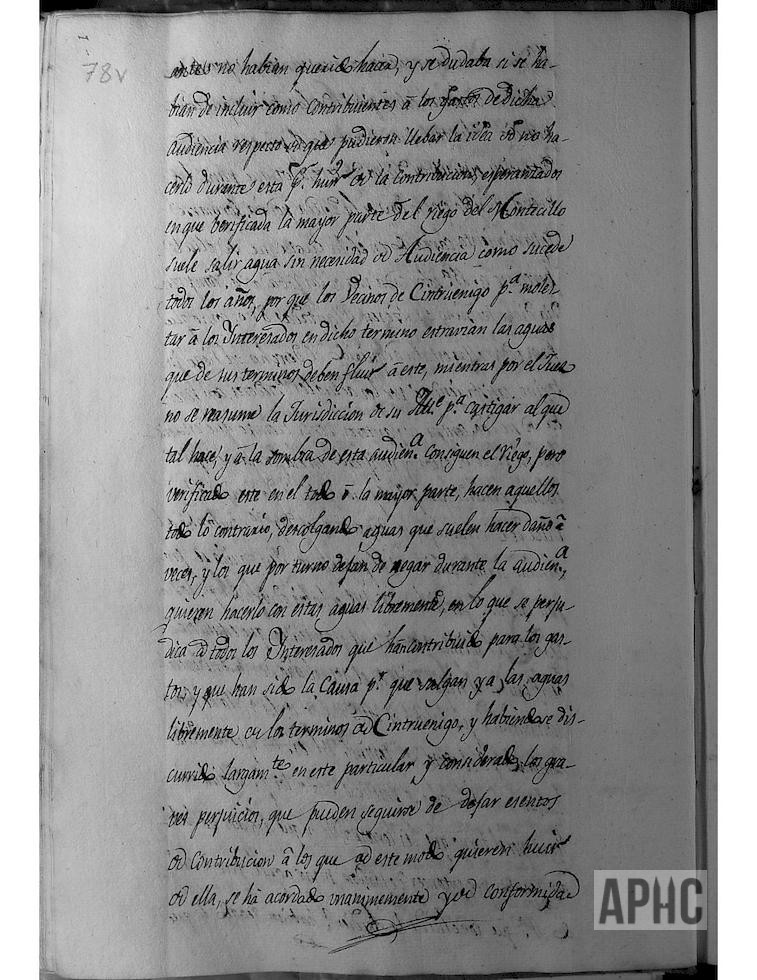 78v
antes no habian querido hacer, y se dudaba si se ha-
bian de incluir como Contribuientes â los gastos de dicha
Audiencia respecto de que pudieron llebar la idea de no ha-
cerlo durante esta pr. huir de la Contribucion, esperanzados
en que berificada la mayor parte del riego del Montecillo
suele salir agua sin necesidad de Audiencia como sucede
todos los años, por que los Vecinos de Cintruenigo pa. moles-
tar â los Interesados en dicho termino estravian las aguas
que de sus terminos deben fluir â este, mientras por el Juez
no se reasume la Jurisdiccion de su Alce. pa. castigar al que
tal hace, y â la sombra de esta audiena. Consiguen el Riego, pero
verificado este en el todo ô la mayor parte, hacen aquellos
todo lo contrario, descolgando aguas que suelen hacer daño â
veces, y los que por turno dejan de regar durante la audiena.,
quieren hacerlo con estas aguas libremente, en lo que se perju-
dica â todos los Interesados que han contribuido para los gas-
tos, y que han sido la Causa pr. que salgan ya las aguas
libremente de los terminos de Cintruenigo, y habiendose dis-
currido largamte. en este particular y considerado, los gra-
ves perjuicios, que pueden seguirse de dejar esentos
de Contribucion â los que de este modo quieren huir
de ella, se há acordado unanimemente y de conformidad
APHC